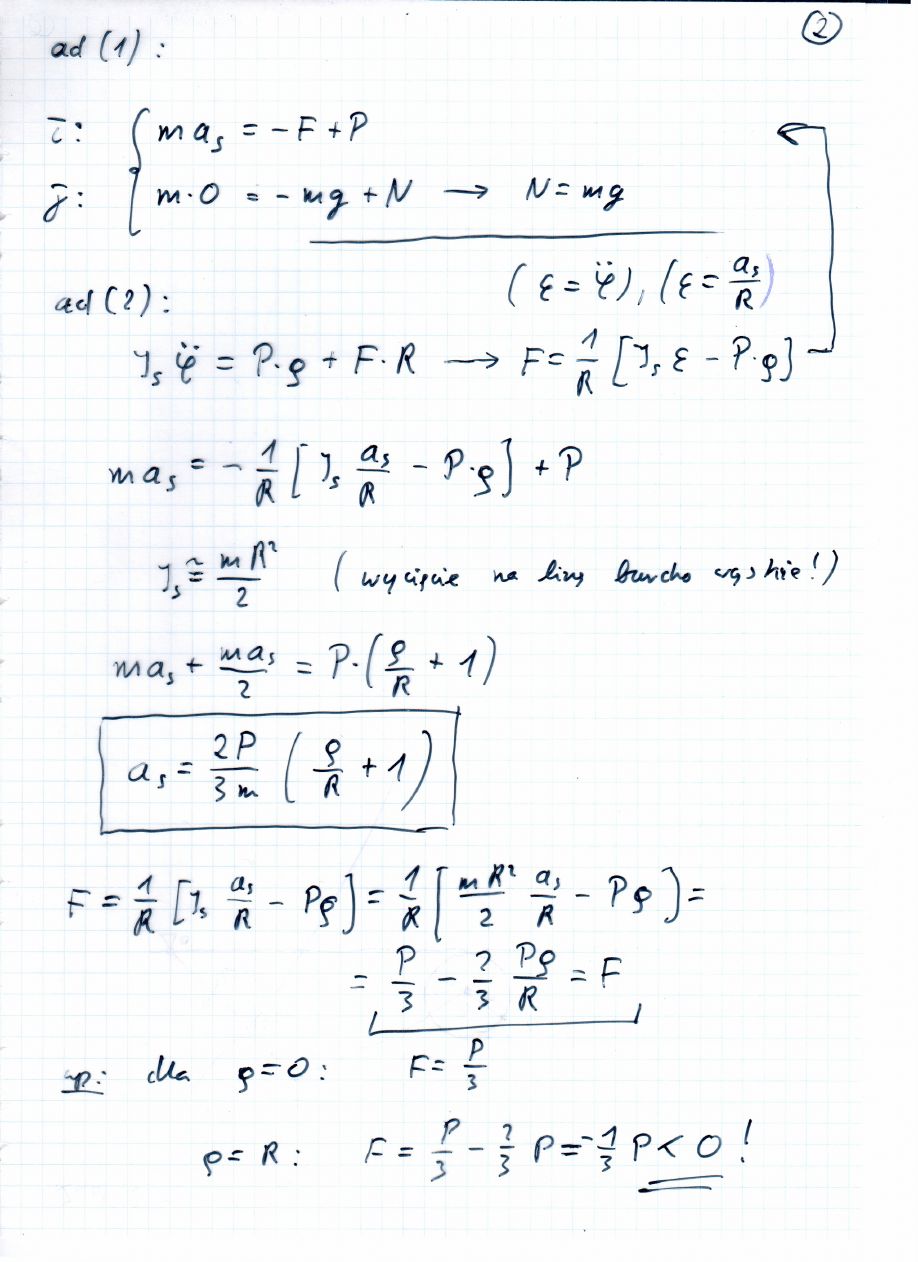 ②
ad (1):
ī: m a_s = -F + P
j̄: m·0 = -mg + N → N = mg
(ε = φ̈), (ε = a_s/R)
ad (2):
J_s φ̈ = P·ρ + F·R → F = 1/R [J_s ε - P·ρ]
m a_s = - 1/R [J_s a_s/R - P·ρ] + P
J_s ≅ mR²/2 (wycięcie na linę bardzo wąskie!)
m a_s + m a_s/2 = P·(ρ/R + 1)
a_s = 2P/3m (ρ/R + 1)
F = 1/R [J_s a_s/R - Pρ] = 1/R [mR²/2 a_s/R - Pρ] =
= P/3 - 2/3 Pρ/R = F
np: dla ρ=0: F = P/3
ρ = R: F = P/3 - 2/3 P = -1/3 P < 0 !